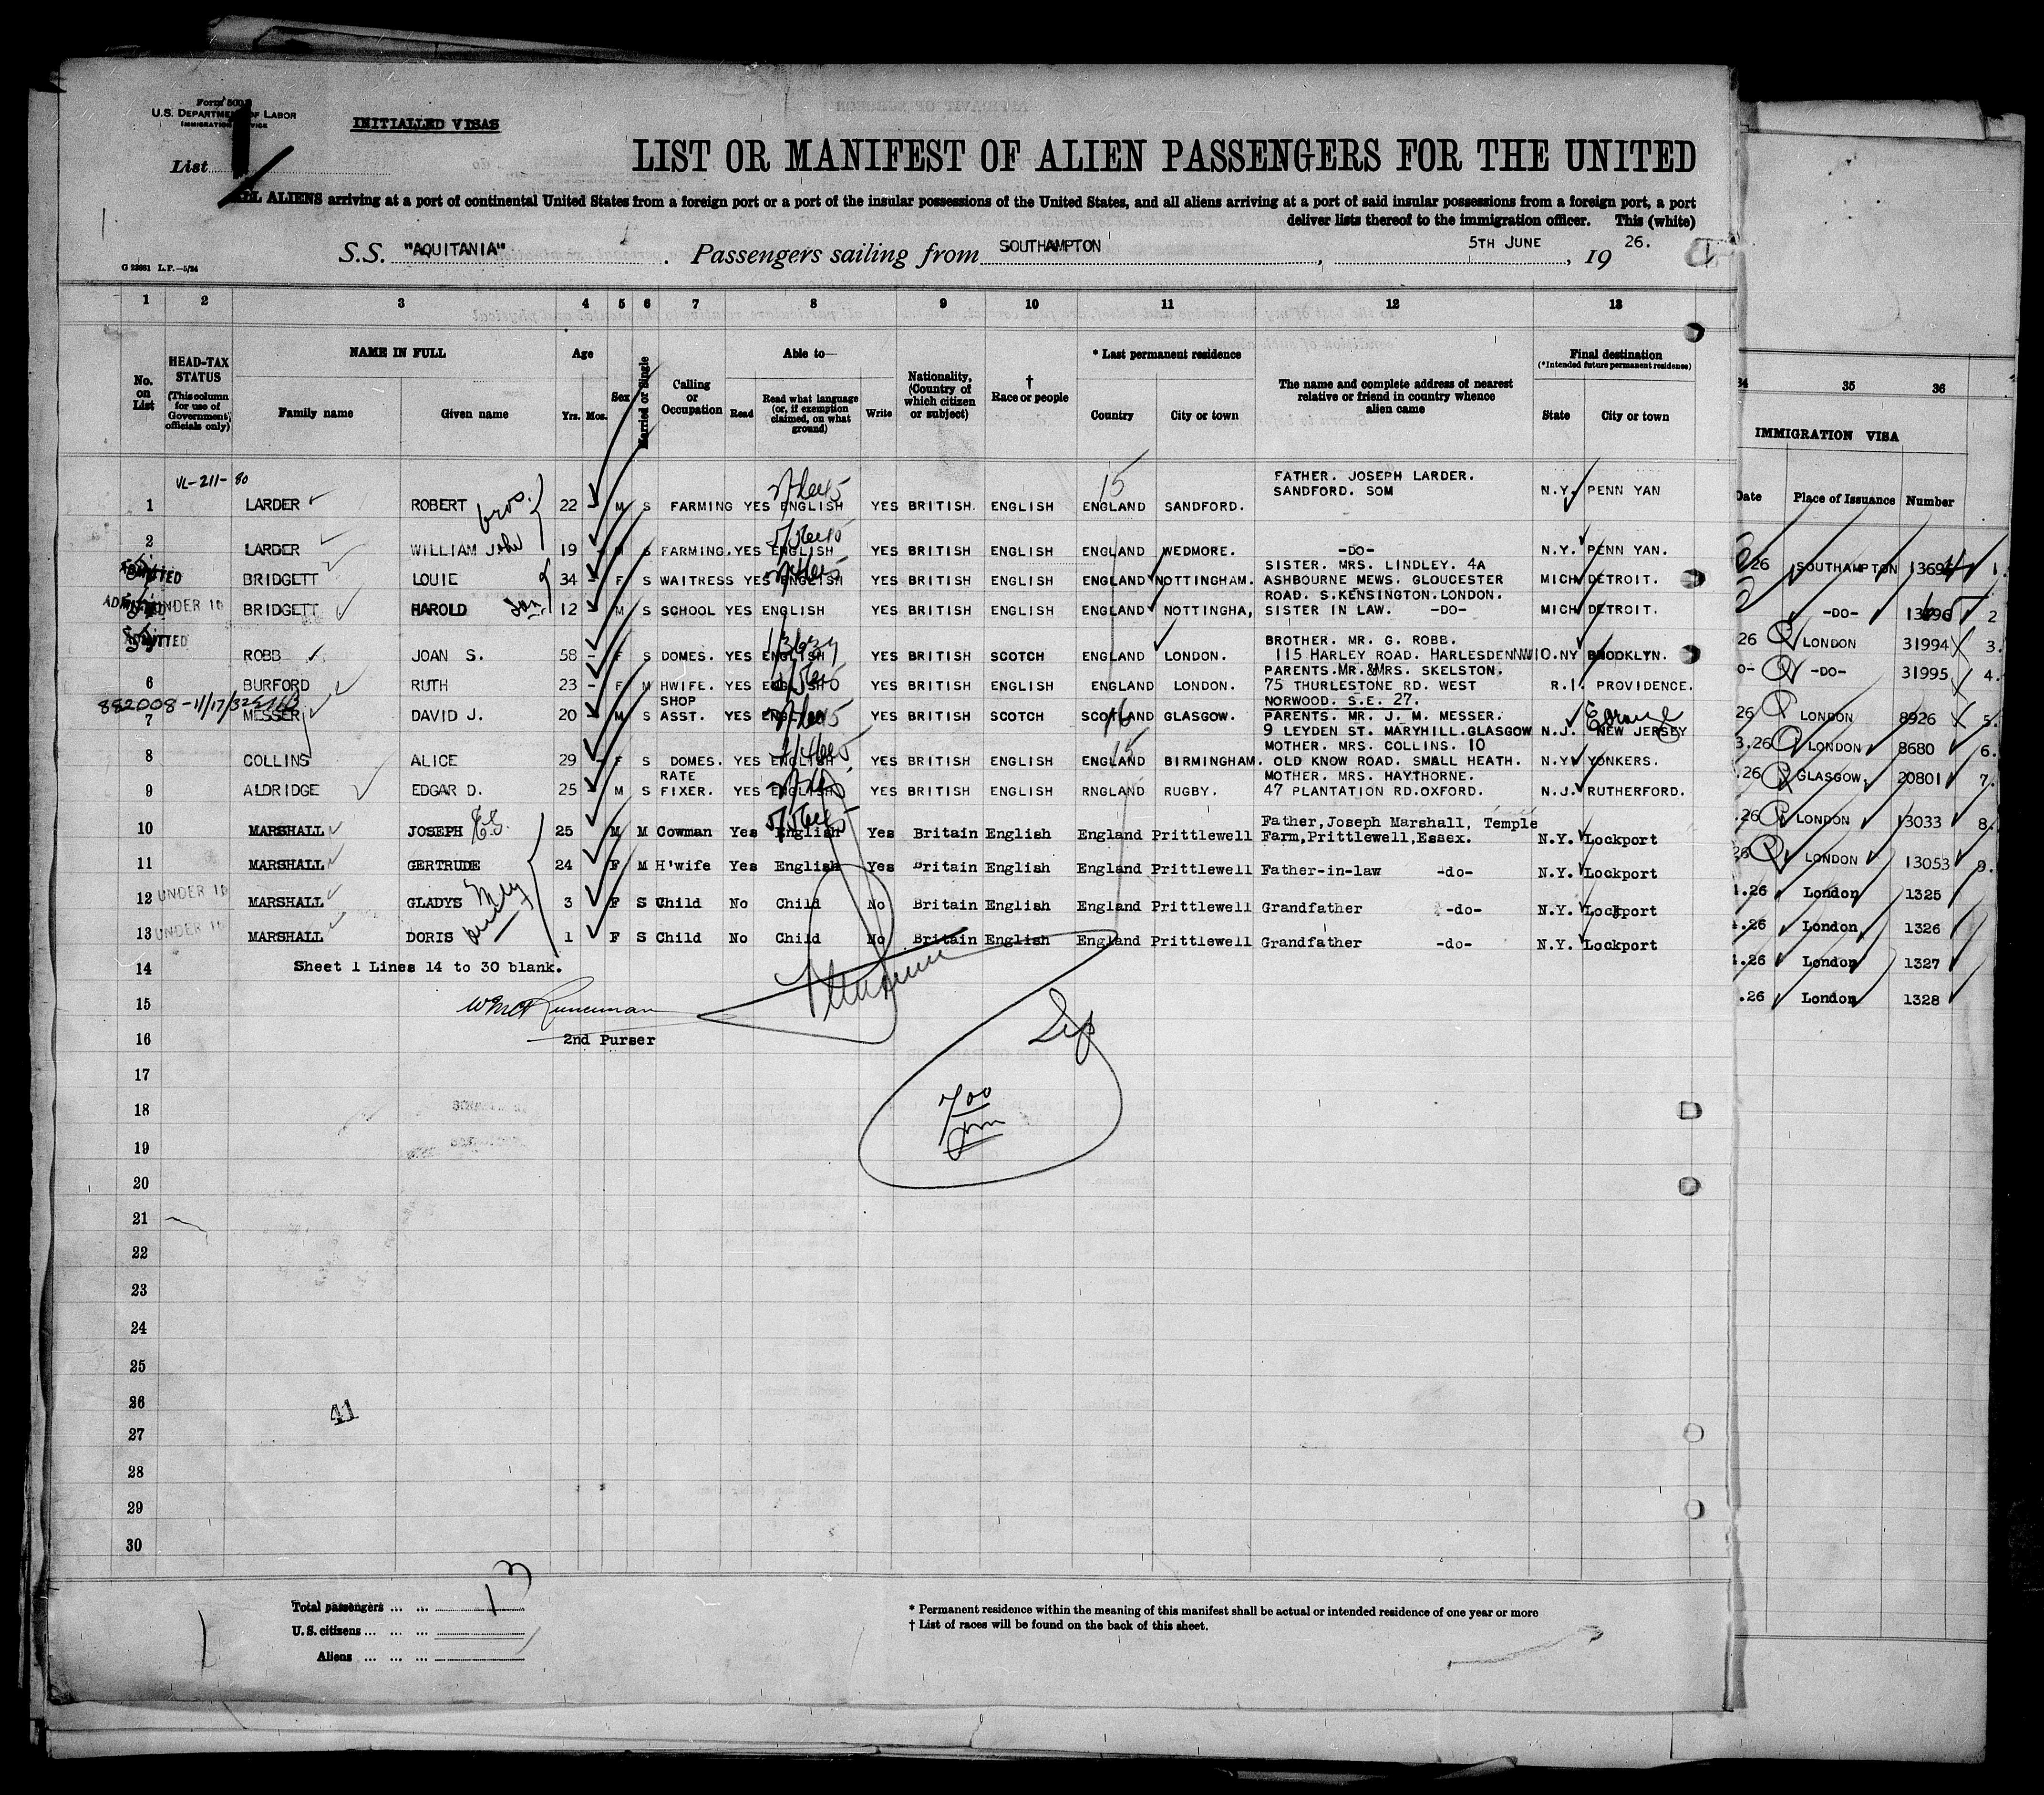 Form 500
U.S. DEPARTMENT OF LABOR
IMMIGRATION SERVICE
INITIALLED VISAS
List 1
LIST OR MANIFEST OF ALIEN PASSENGERS FOR THE UNITED
ALL ALIENS arriving at a port of continental United States from a foreign port or a port of the insular possessions of the United States, and all aliens arriving at a port of said insular possessions from a foreign port, a port
deliver lists thereof to the immigration officer. This (white)
S.S. "AQUITANIA" . Passengers sailing from SOUTHAMPTON , 5TH JUNE , 19 26.
G 23881 L.P.—5/24
1 2 3 4 5 6 7 8 9 10 11 12 13
No. on List
HEAD-TAX STATUS (This column for use of Government officials only)
NAME IN FULL
Family name Given name
Age
Yrs. Mos.
Sex
Married or Single
Calling or Occupation
Able to—
Read Read what language (or, if exemption claimed, on what ground) Write
Nationality, (Country of which citizen or subject)
† Race or people
* Last permanent residence
Country City or town
The name and complete address of nearest relative or friend in country whence alien came
Final destination
(*Intended future permanent residence)
State City or town
34 35 36
IMMIGRATION VISA
Date Place of Issuance Number
VL-211-80
FATHER. JOSEPH LARDER.
1 LARDER ROBERT bros. 22 M S FARMING YES ENGLISH YES BRITISH. ENGLISH ENGLAND SANDFORD. SANDFORD. SOM N.Y. PENN YAN
15
2 LARDER WILLIAM John 19 - M S FARMING. YES ENGLISH YES BRITISH ENGLISH ENGLAND WEDMORE. -DO- N.Y. PENN YAN.
SISTER. MRS. LINDLEY. 4A
ADMITTED BRIDGETT LOUIE 34 - F S WAITRESS YES ENGLISH YES BRITISH ENGLISH ENGLAND NOTTINGHAM. ASHBOURNE MEWS. GLOUCESTER MICH DETROIT.
ROAD. S.KENSINGTON.LONDON.
ADMITTED UNDER 16 BRIDGETT HAROLD son 12 M S SCHOOL YES ENGLISH YES BRITISH ENGLISH ENGLAND NOTTINGHA, SISTER IN LAW. -DO- MICH DETROIT.
ADMITTED
BROTHER. MR. G. ROBB.
ROBB JOAN S. 58 - F S DOMES. YES ENGLISH YES BRITISH SCOTCH ENGLAND LONDON. 115 HARLEY ROAD. HARLESDENNW10. NY BROOKLYN.
PARENTS.MR.&MRS. SKELSTON.
6 BURFORD RUTH 23 - F M HWIFE. YES ENGLISH YES BRITISH ENGLISH ENGLAND LONDON. 75 THURLESTONE RD. WEST R.I. PROVIDENCE.
882008-11/17/32
SHOP NORWOOD. S.E. 27.
7 MESSER DAVID J. 20 M S ASST. YES ENGLISH YES BRITISH SCOTCH SCOTLAND GLASGOW. PARENTS. MR. J. M. MESSER.
9 LEYDEN ST. MARYHILL.GLASGOW N.J. NEW JERSEY
MOTHER. MRS. COLLINS. 10
8 COLLINS ALICE 29 - F S DOMES. YES ENGLISH YES BRITISH ENGLISH ENGLAND BIRMINGHAM. OLD KNOW ROAD. SMALL HEATH. N.Y. YONKERS.
15
RATE MOTHER. MRS. HAYTHORNE.
9 ALDRIDGE EDGAR D. 25 - M S FIXER. YES ENGLISH YES BRITISH ENGLISH RNGLAND RUGBY. 47 PLANTATION RD.OXFORD. N.J. RUTHERFORD.
Father,Joseph Marshall, Temple
10 MARSHALL JOSEPH 25 M M Cowman Yes English Yes Britain English England Prittlewell Farm,Prittlewell,Essex. N.Y. Lockport
11 MARSHALL GERTRUDE 24 F M H'wife Yes English Yes Britain English England Prittlewell Father-in-law -do- N.Y. Lockport
12 UNDER 16 MARSHALL GLADYS family 3 F S Child No Child No Britain English England Prittlewell Grandfather -do- N.Y. Lockport
13 UNDER 16 MARSHALL DORIS 1 F S Child No Child No Britain English England Prittlewell Grandfather -do- N.Y. Lockport
14 Sheet 1 Lines 14 to 30 blank.
15
16 2nd Purser
17
18
19
20
21
22
23
24
25
26
27
28
29
30
700
pm
41
Total passengers ... ... 13
U.S. citizens ... ... ...
Aliens ... ... ...
* Permanent residence within the meaning of this manifest shall be actual or intended residence of one year or more
† List of races will be found on the back of this sheet.
26 SOUTHAMPTON 1369 1.
-DO- 2
26 LONDON 31994 3.
-DO- 31995 4.
26 LONDON 8926 5.
3.26 LONDON 8680 6.
.26 GLASGOW. 20801 7.
.26 LONDON 13033 8.
26 LONDON 13053 9.
.26 London 1325
.26 London 1326
.26 London 1327
.26 London 1328